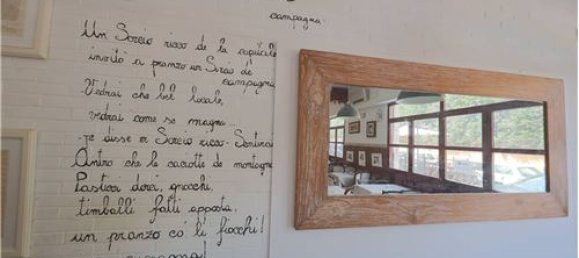 campagna.
Un Sorcio ricco de la capitale
invitò a pranzo un Sorcio de
campagna.
Vedrai che bel locale,
vedrai come se magna...
- je disse er Sorcio ricco - Sentirai!
Antro che le caciotte de montagna!
Pasticci dorci, gnocchi,
timballi fatti apposta,
un pranzo co' li fiocchi!